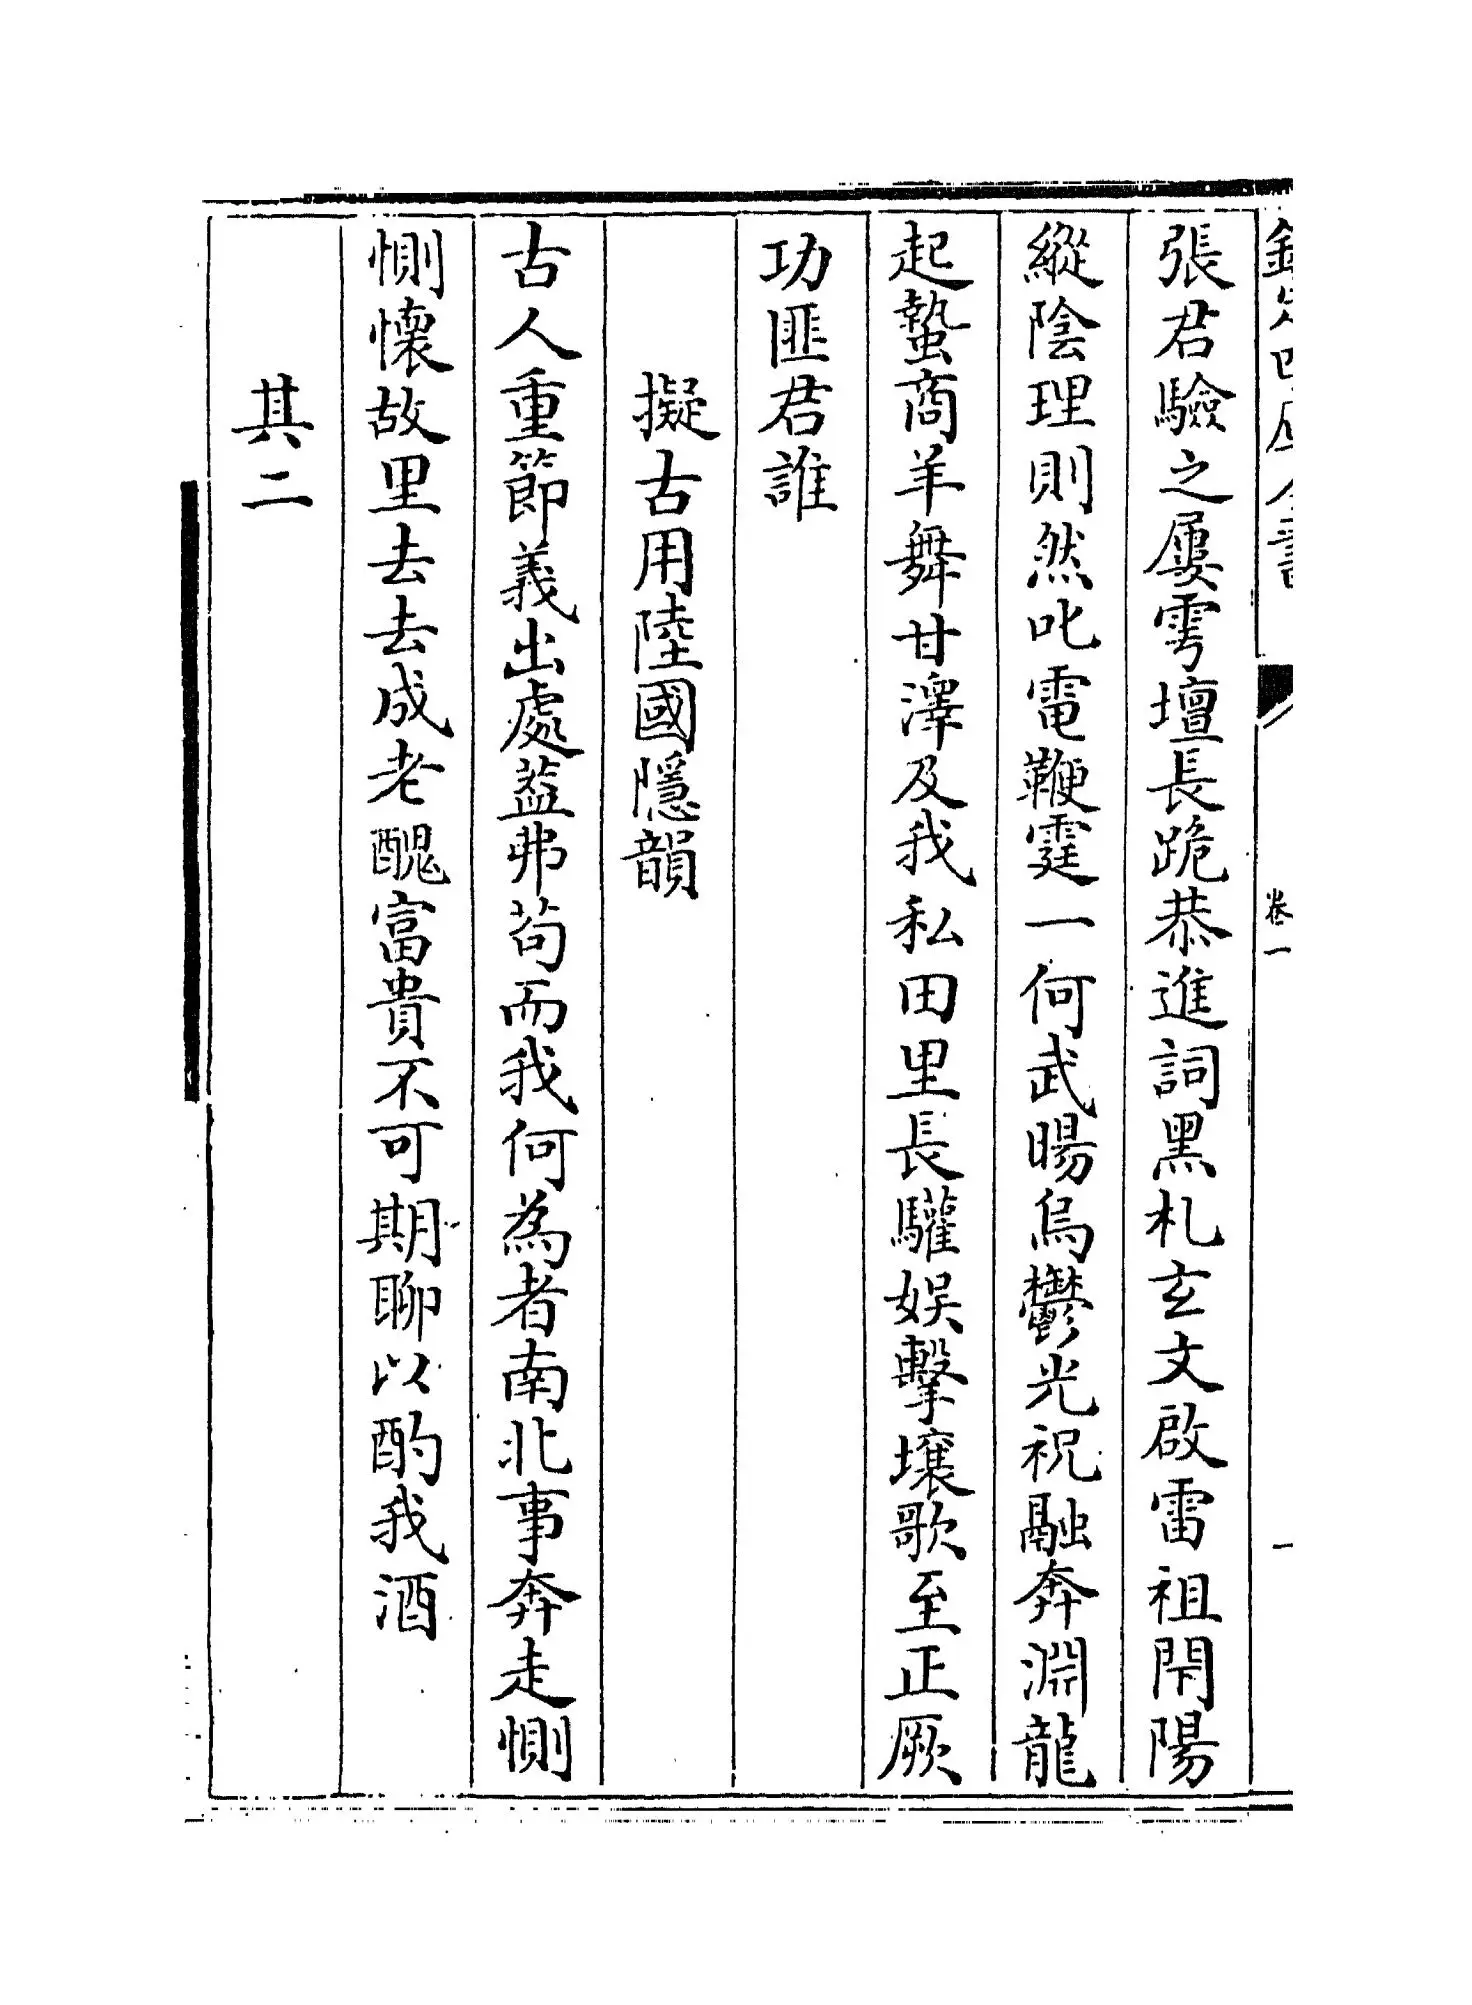 張君驗之屢雩壇長跪恭進詞黑札玄文啟雷祖閇陽
縱陰理則然叱電鞭霆一何武暘烏鬱光祝融奔淵龍
起蟄商羊舞甘澤及我私田里長驩娛擊壤歌至正厥
功匪君誰
擬古用陸國隱韻
古人重節義出處葢弗苟而我何為者南北事奔走惻
惻懷故里去去成老醜富貴不可期聊以酌我酒
其二
卷一
一